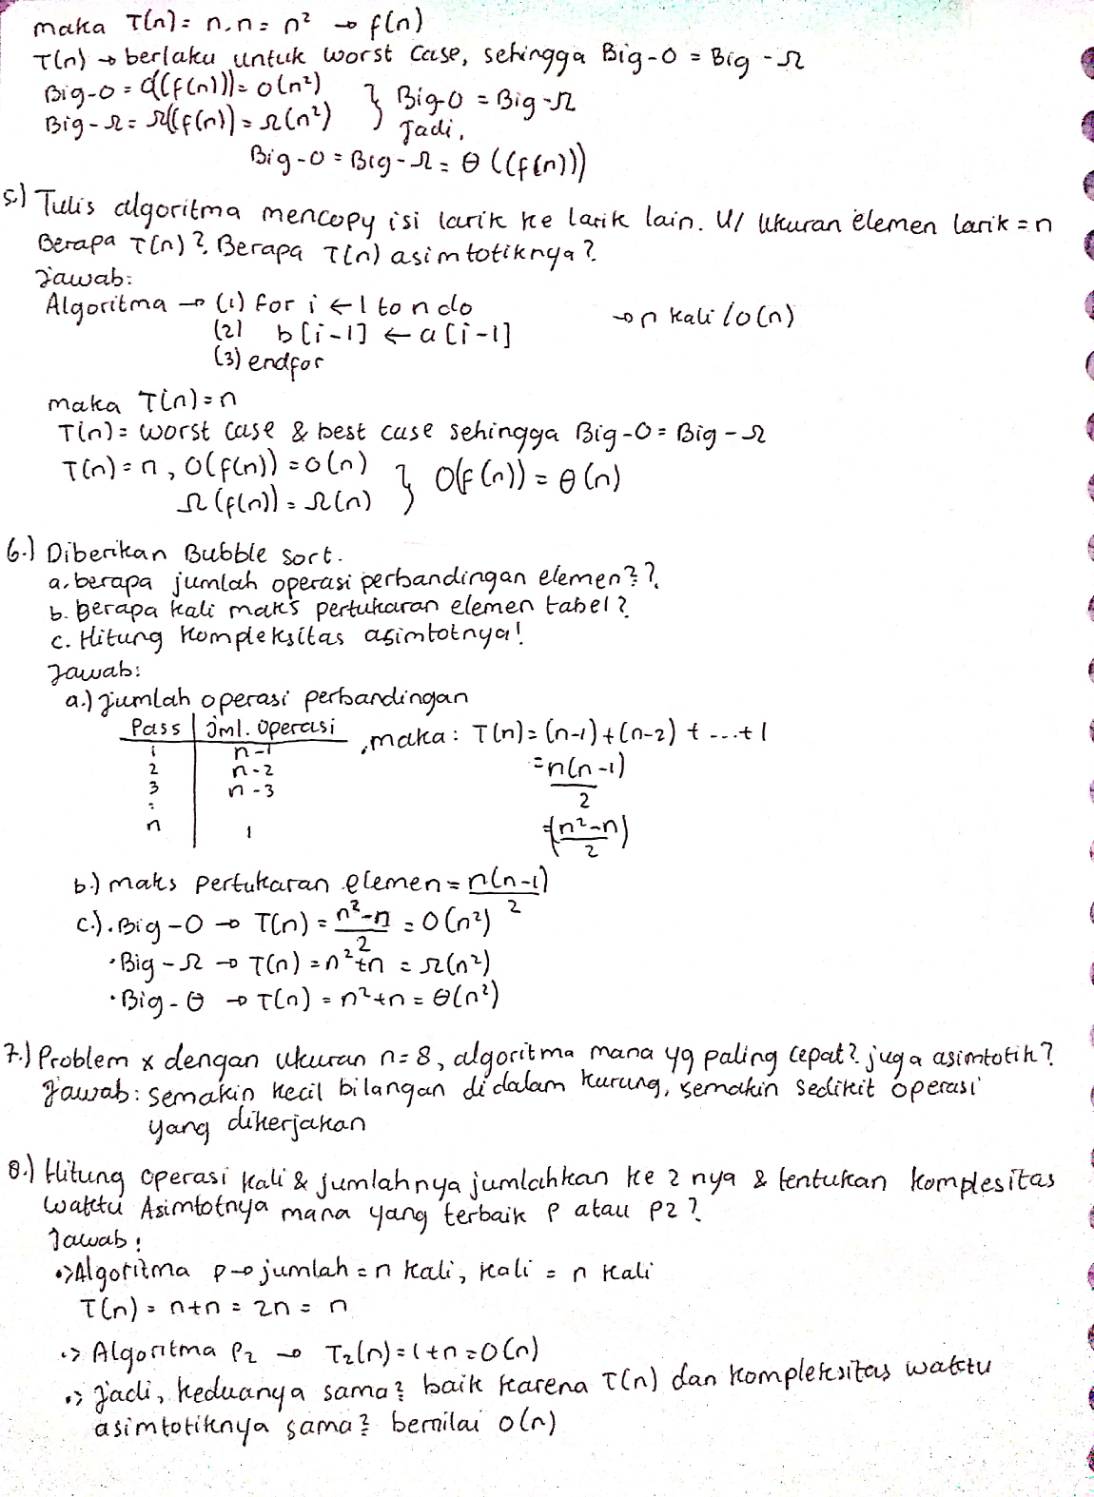 maka T(n) = n.n = n² → f(n)
T(n) → berlaku untuk worst case, sehingga Big-O = Big-Ω
Big-O = O((f(n)) = O(n²) } Big-O = Big-Ω
Big-Ω = Ω((f(n)) = Ω(n²) Jadi,
Big-O = Big-Ω = θ((f(n)))
5.) Tulis algoritma mencopy isi larik ke larik lain. U/ Ukuran elemen larik = n
Berapa T(n)? Berapa T(n) asimtotiknya?
Jawab:
Algoritma → (1) For i ← 1 to n do → n kali / O(n)
(2) b[i-1] ← a[i-1]
(3) endfor
maka T(n) = n
T(n) = worst case & best case sehingga Big-O = Big-Ω
T(n) = n, O(f(n)) = O(n) } O(f(n)) = θ(n)
Ω(f(n)) = Ω(n)
6.) Diberikan Bubble sort.
a. berapa jumlah operasi perbandingan elemen2?
b. Berapa kali maks pertukaran elemen tabel?
c. Hitung kompleksitas asimtotnya!
Jawab:
a.) Jumlah operasi perbandingan
Pass | Jml. Operasi , maka: T(n) = (n-1) + (n-2) + ... + 1
1 n-1 = n(n-1)/2
2 n-2
3 n-3
:
n 1 = (n²-n)/2
b.) maks pertukaran elemen = n(n-1)/2
c.) . Big-O → T(n) = n²-n/2 = O(n²)
. Big-Ω → T(n) = n²+n = Ω(n²)
. Big-θ → T(n) = n²+n = θ(n²)
7.) Problem x dengan ukuran n=8, algoritma mana yg paling cepat? juga asimtotik?
Jawab: semakin kecil bilangan didalam kurung, semakin sedikit operasi
yang dikerjakan
8.) Hitung operasi kali & jumlahnya jumlahkan ke 2 nya & tentukan komplesitas
waktu Asimtotnya mana yang terbaik P atau P2?
Jawab:
.> Algoritma P → jumlah = n kali, kali = n kali
T(n) = n+n = 2n = n
.> Algoritma P2 → T2(n) = 1+n = O(n)
.> Jadi, keduanya sama2 baik karena T(n) dan kompleksitas waktu
asimtotiknya sama2 bernilai O(n)